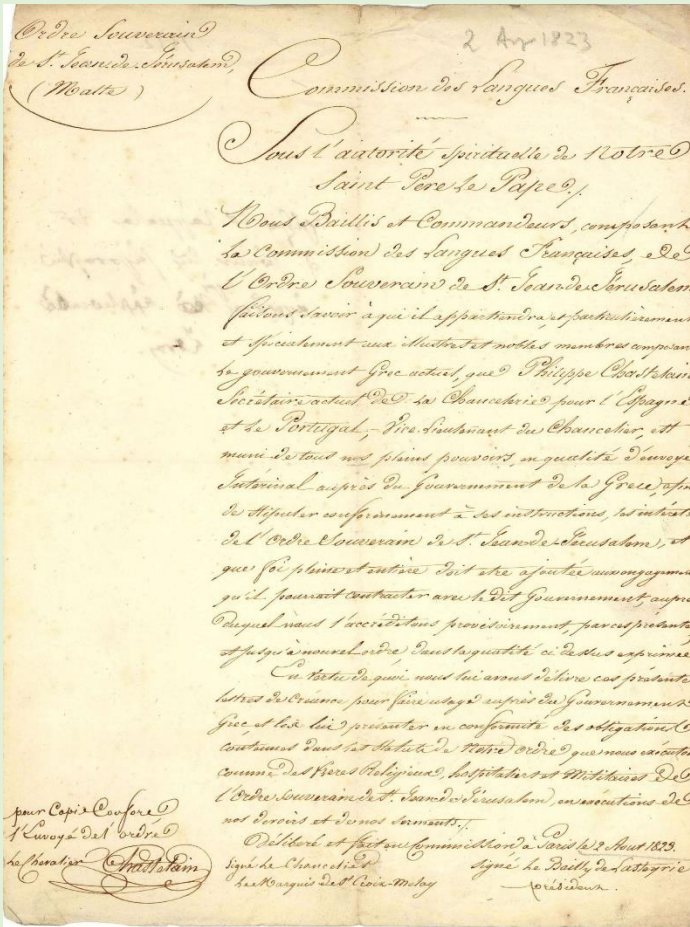 Ordre Souverain
de St. Jean de Jérusalem,
(Malte)
2 Aug 1823
Commission des Langues Françaises.
Sous l'autorité spirituelle de Notre
Saint Pere Le Pape
Nous Baillis et Commandeurs, composant
La Commission des Langues Françaises, de
l'Ordre Souverain de St. Jean de Jérusalem
faisons savoir à qui il appartiendra, et particulièrement
et spécialement aux illustres et nobles membres composant
Le gouvernement Grec actuel, que Philippe Chastelain
Sécrétaire actuel de La Chancelerie pour l'Espagne
et Le Portugal, Vice Lieutenant du Chancelier, est
muni de tous nos pleins pouvoirs, en qualité d'envoyé
Intérimal auprès du Gouvernement de la Grece, afin
de stipuler conformement à ses instructions, les intérêts
de l'Ordre Souverain de St. Jean de Jérusalem, et
que foi pleine et entière doit etre ajoutée aux engagemen
qu'il pourrait contracter avec le dit Gouvernement, auprè
duquel nous l'accréditons provisoirement, par ces présente
et jusqu'à nouvel ordre, dans la qualité ci dessus exprimée
En vertu de quoi nous lui avons délivré ces présente
lettres de Créance pour faire usage auprès du Gouvernement
Grec, et les lui présenter en conformité des obligations
contenues dans les Statuts de Notre ordre que nous executon
comme des Freres Religieux, hospitaliers et Militaires De
l'Ordre Souverain de St. Jean de Jérusalem, en exécutions de
nos devoirs et de nos serments.
Délibéré et fait en Commission à Paris le 2 Aout 1823.
signé Le Chancelier
Le Marquis de Ste Croix-Molay
signé Le Bailly de Lasteyrie
président.
pour Copie Conforme
l'Envoyé de l'ordre
Le Chevalier Chastelain